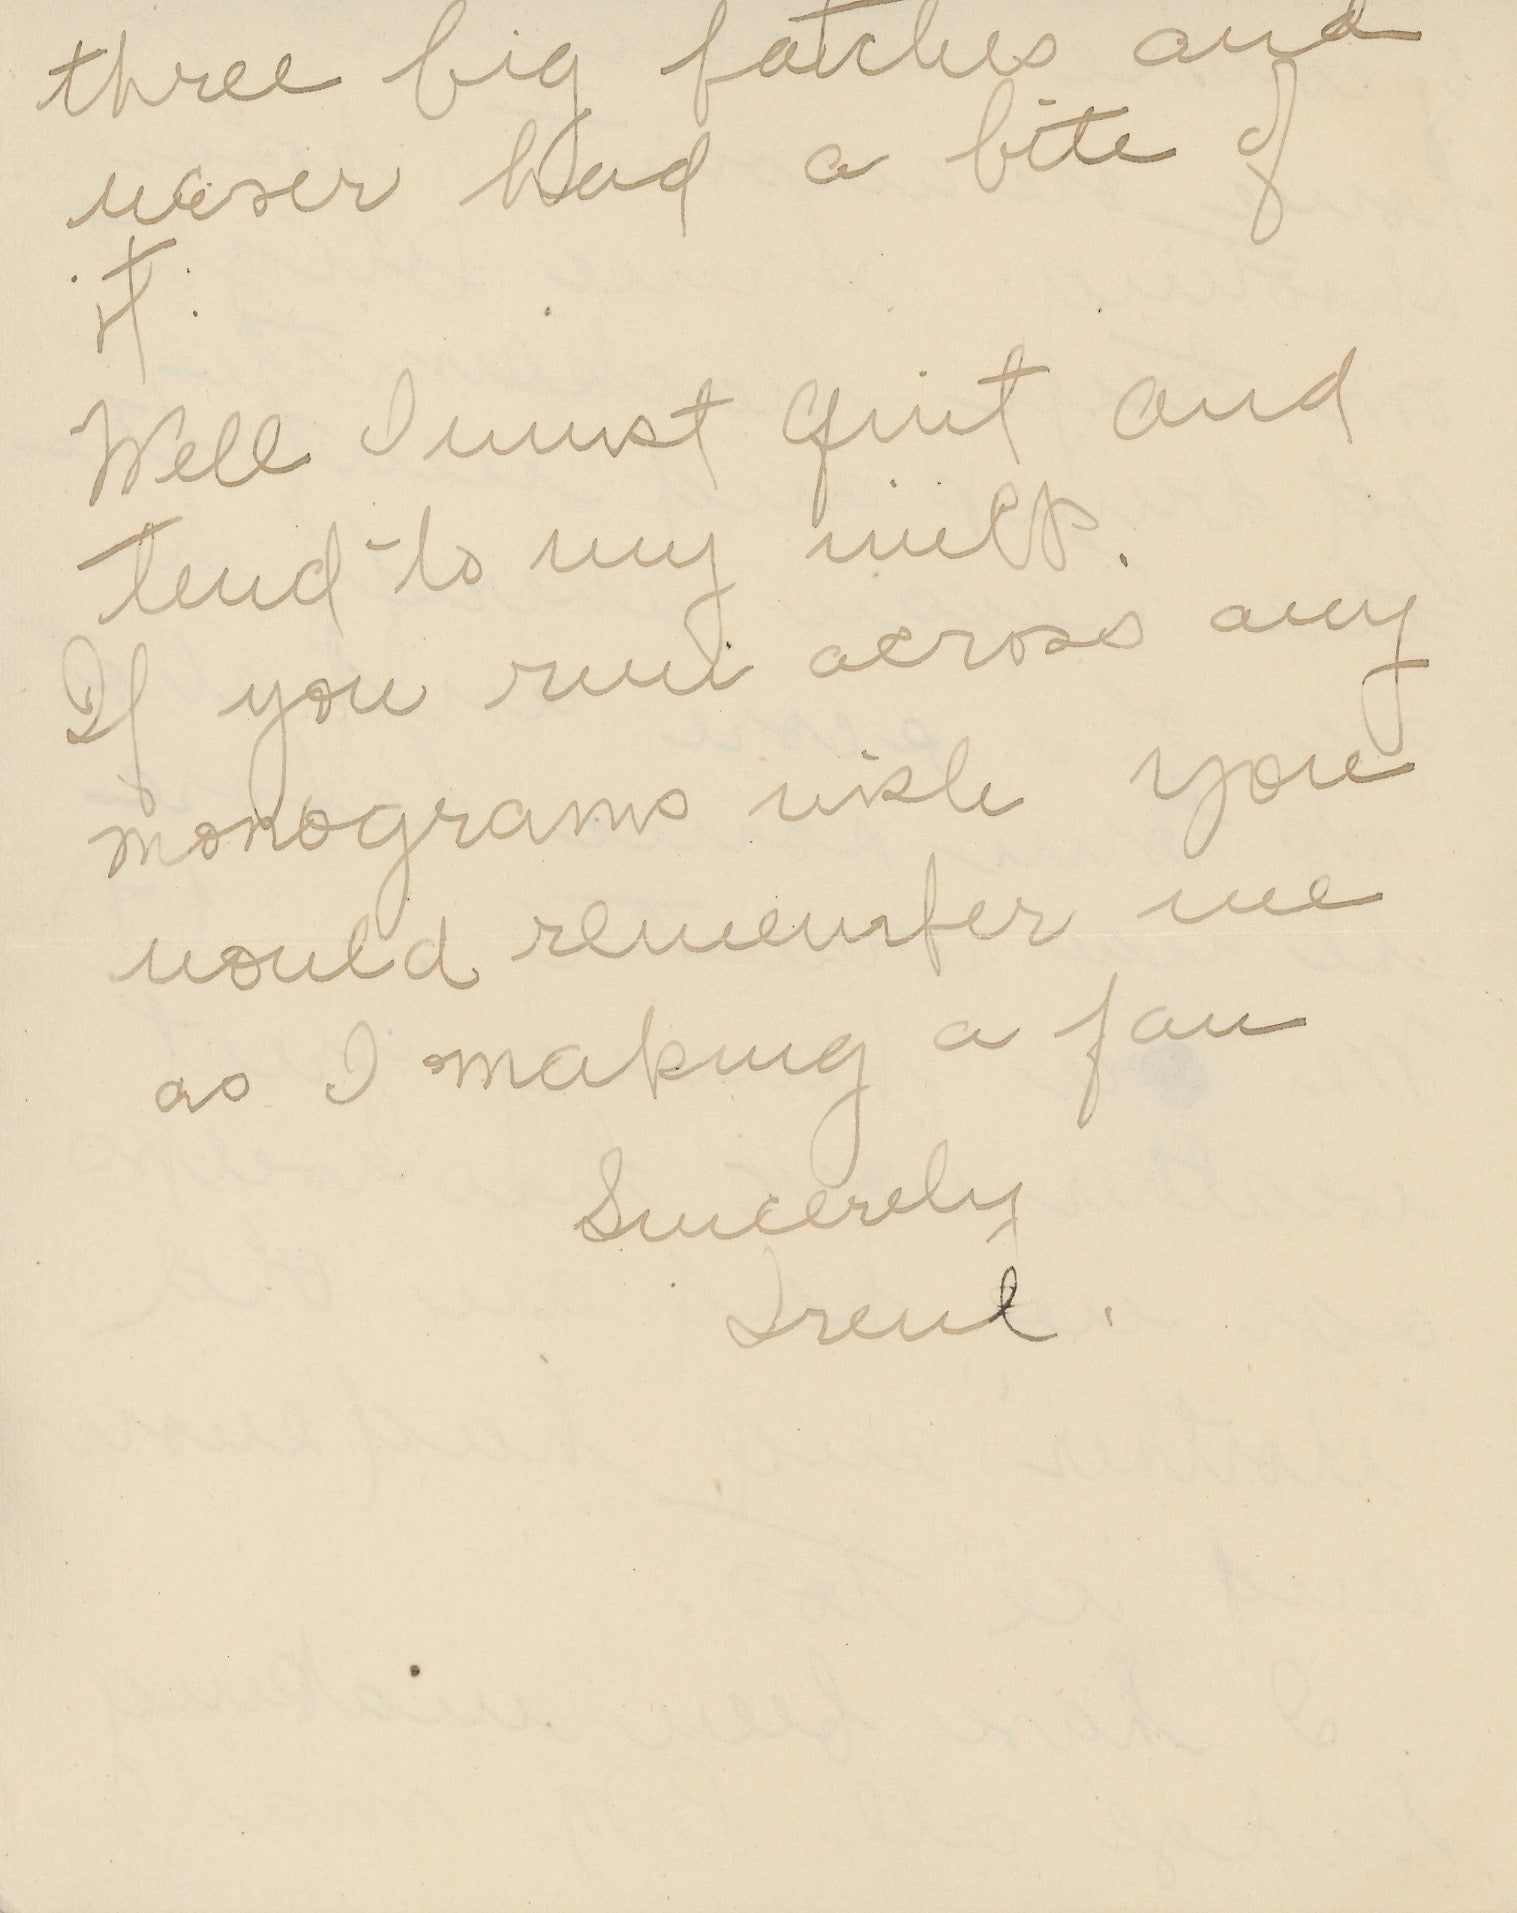 three big batches and
never had a bite of
it.
Well I must quit and
tend to my milk.
If you run across any
monograms wish you
would remember me
as I making a fan
Sincerely
Irene.